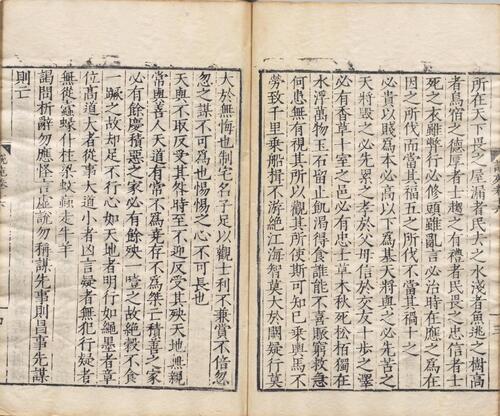 所在天下畏之屋漏者民去之水淺者魚逃之樹高
者鳥宿之德厚者士趨之有禮者民畏之忠信者士
死之衣雖弊行必修頭雖亂言必治時在應之爲在
因之所伐而當其福五之所伐不當其禍十之
必貴以賤爲本必高以下爲基天將與之必先苦之
天將毀之必先累之孝於父母信於交友十步之澤
必有香草十室之邑必有忠士草木秋死松柏獨在
水浮萬物玉石留止飢渴得食誰能不喜賑窮救急
何患無有視其所以觀其所使斯可知已乘輿馬不
勞致千里乘船楫不游絶江海智莫大於闕疑行莫
大於無悔也制宅名子足以觀士利不兼賞不倍忽
忽之謀不可爲也惕惕之心不可長也
天與不取反受其咎時至不迎反受其殃天地無親
常與善人天道有常不爲堯存不爲桀亡積善之家
必有餘慶積惡之家必有餘殃一噎之故絶穀不食
一蹶之故却足不行心如天地者明行如繩墨者章
位高道大者從事大道小者凶言疑者無犯行疑者
無從蠹蝝仆柱梁蚊䖟走牛羊
謁問析辭勿應怪言虛說勿稱謀先事則昌事先謀
則亡